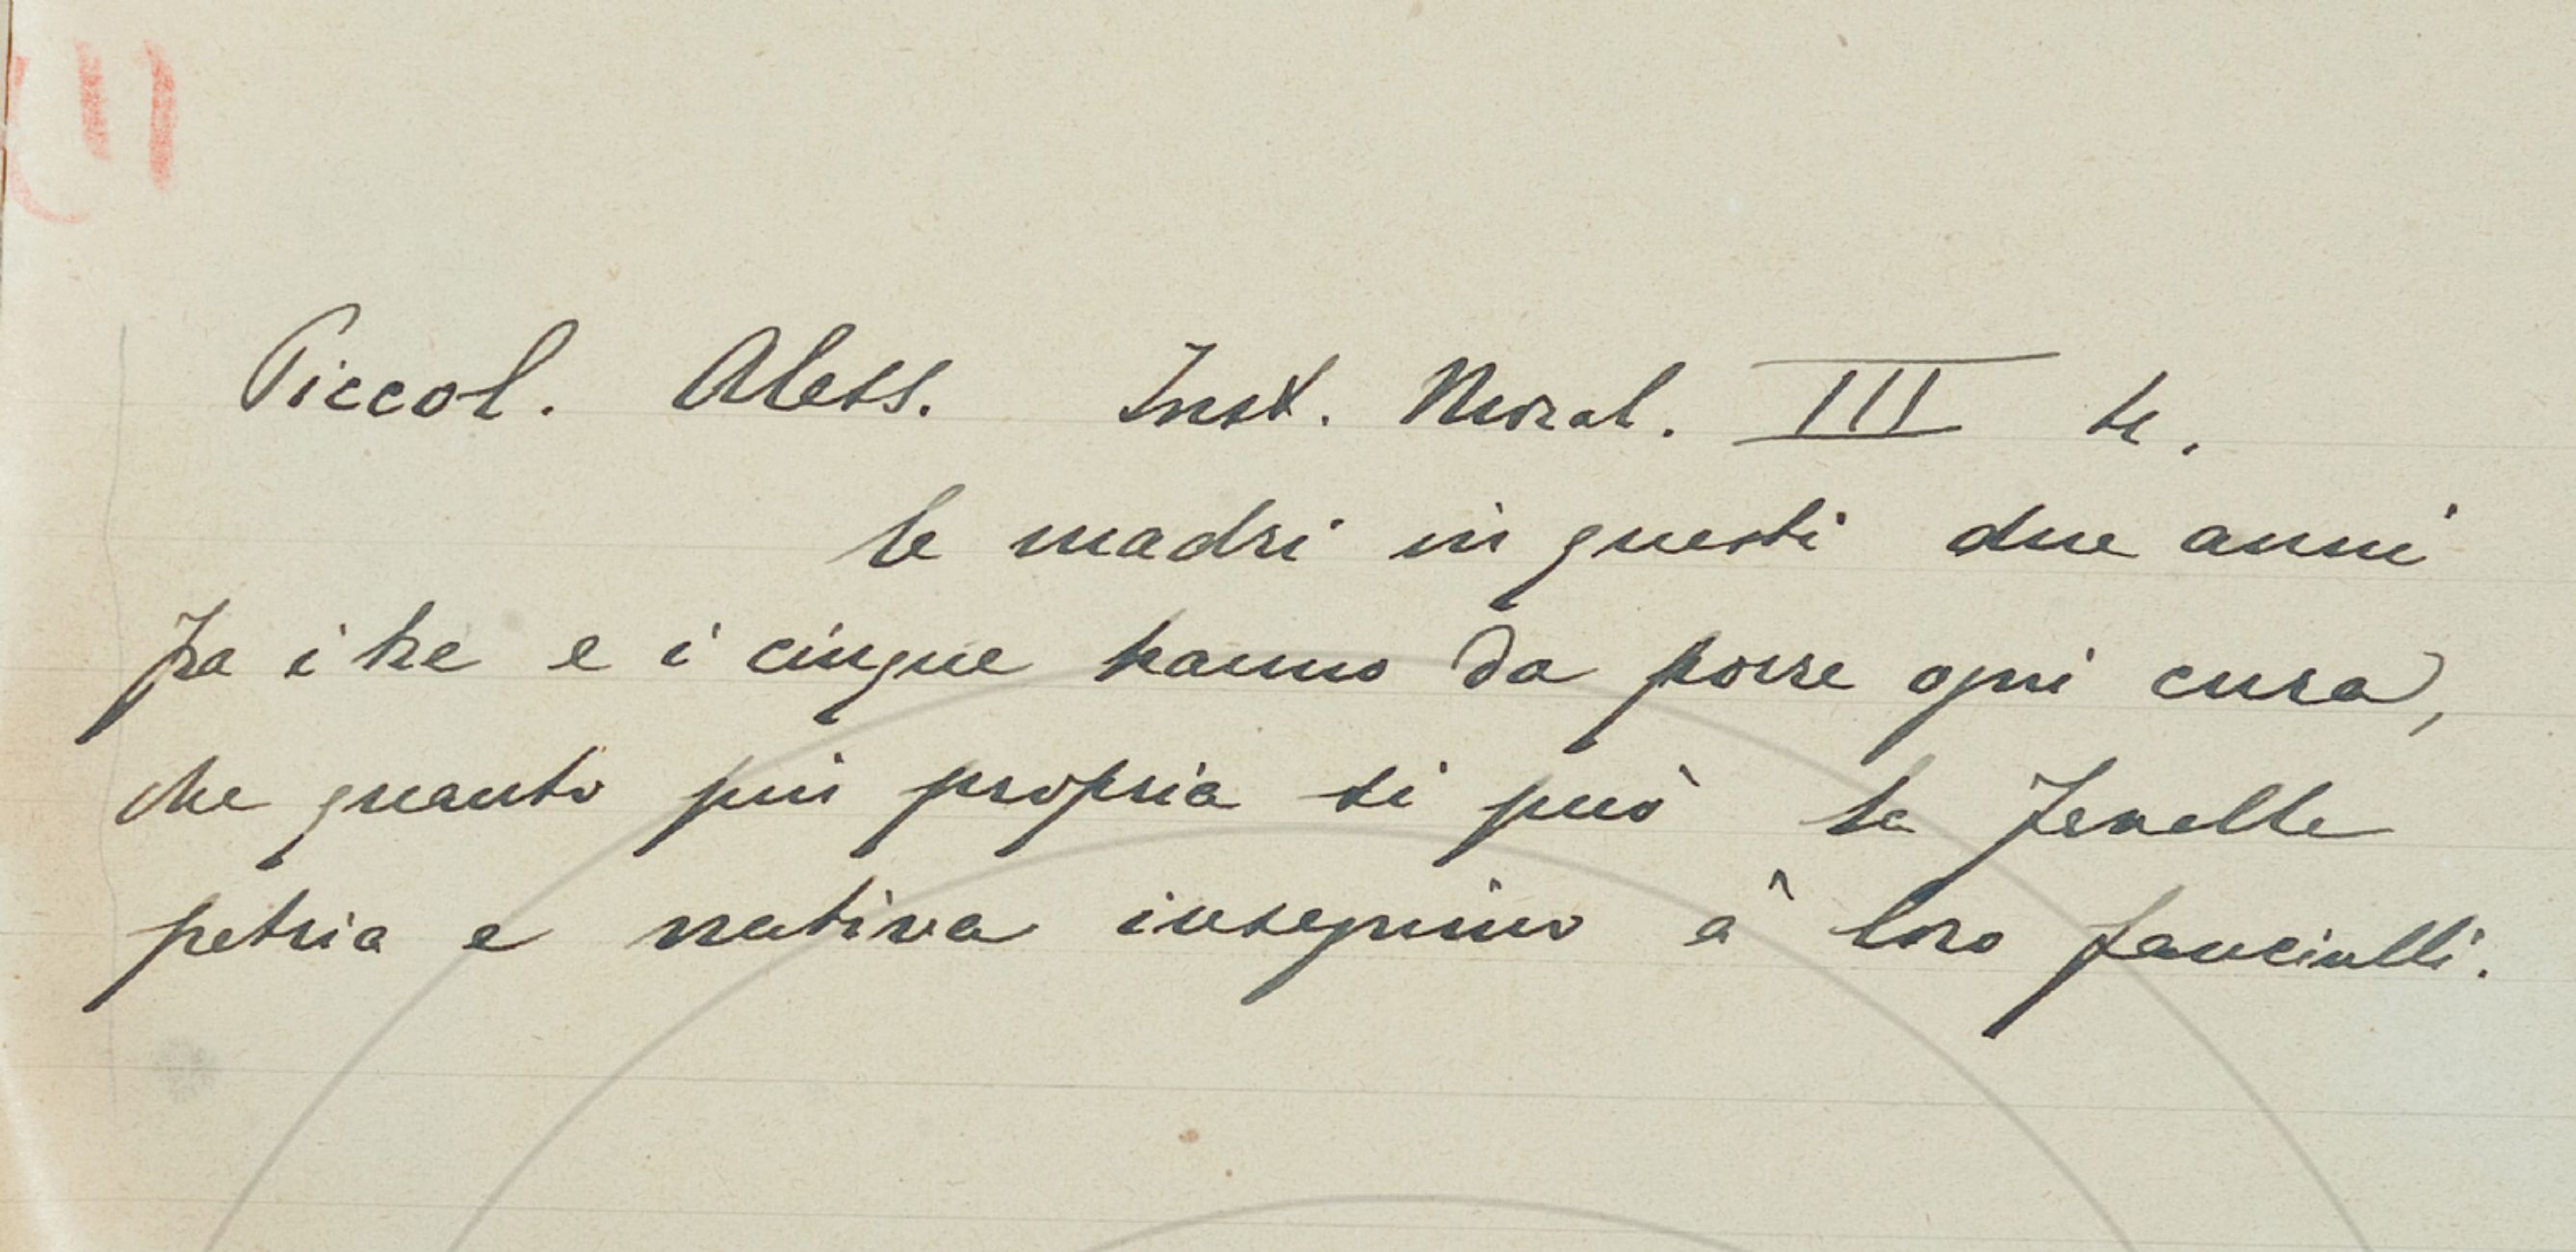 Piccol. Aless. Inst. Moral. III
le madri in questi due anni
fra i tre e i cinque hanno da porre ogni cura,
che quanto più propria si può la favella
patria e nativa insegnino a' loro fanciulli.